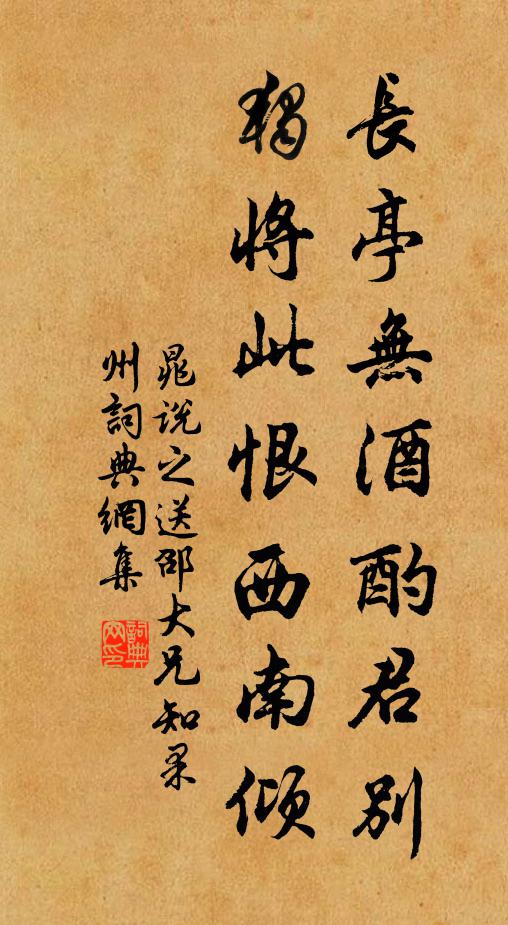 長亭無酒酌君別
獨將此恨西南傾
晁說之送邵大兄知果
州詞典網集
詞典
网印